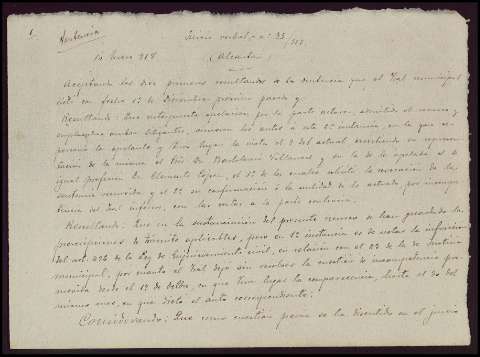 Sentencia
Juicio verbal nº 35/
14 Enero 918
(Alcaudete)
Aceptando los dos primeros resultandos de la sentencia que el Tral municipal
dictó en fecha 1º de Diciembre próximo pasado y
Resultando: Que interpuesta apelación por la parte actora, admitido el recurso y
emplazados ambos litigantes, vinieron los autos a esta 2ª instancia, en la que
el apelante y tuvo lugar la vista el 9 del actual asistiendo en
de la misma el Pdor Dn Bartolomé Villanova y en la de la apelada el de
igual profesión Dn Clemente López, el 1º de los cuales solicitó la revocación de la
sentencia recurrida y el 2º su confirmación o la nulidad de lo actuado por
del Tral inferior, con las costas a la parte contraria.
Resultando: Que en la sustanciación del presente recurso se han guardado las
prescripciones de trámite aplicables, pero en 1ª instancia es de notar la infracción
del art. de la Ley de Enjuiciamiento civil, en relación con el de la de Justicia
municipal, por cuanto el Tral dejó sin resolver la cuestión de incompetencia
desde el 12 de en que tuvo lugar la comparecencia, hasta el 30 del
mismo mes, en que dictó el auto correspondiente.
Considerando: Que como cuestión previa se ha discutido en el juicio